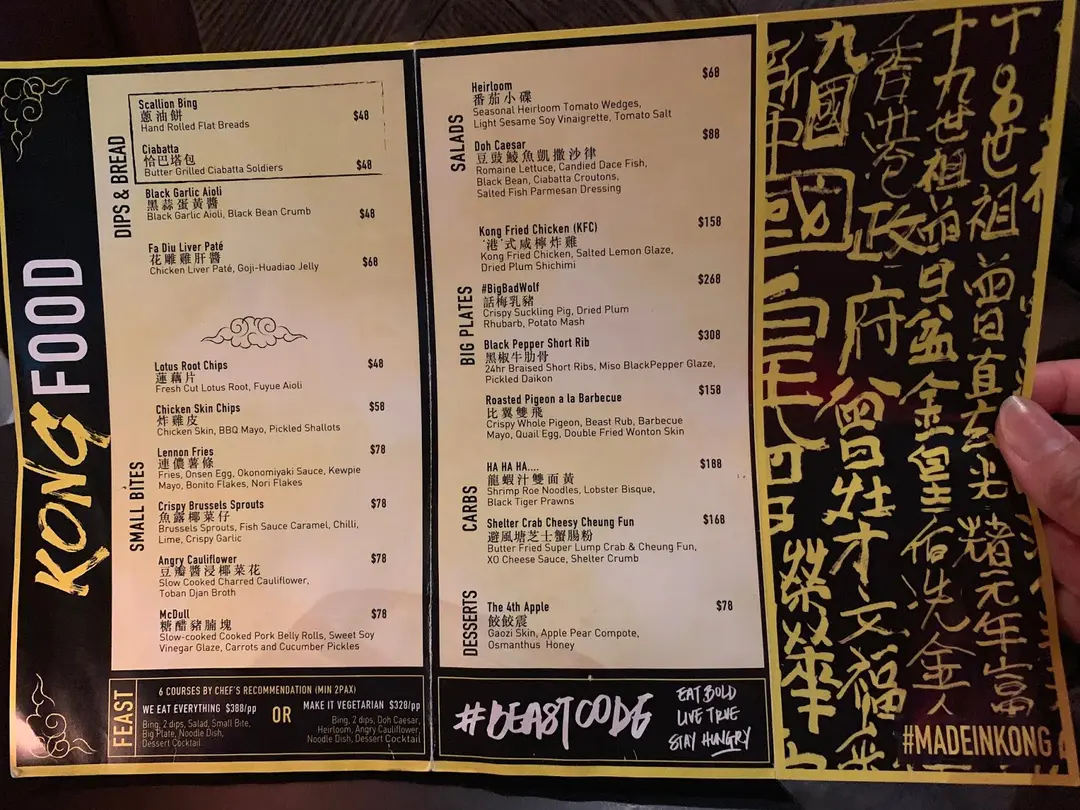 KONG FOOD
DIPS & BREAD
Scallion Bing
蔥油餅 $48
Hand Rolled Flat Breads
Ciabatta
恰巴塔包
Butter Grilled Ciabatta Soldiers $48
Black Garlic Aioli
黑蒜蛋黃醬
Black Garlic Aioli, Black Bean Crumb $48
Fa Diu Liver Paté
花雕雞肝醬
Chicken Liver Paté, Goji-Huadiao Jelly $68
SMALL BITES
Lotus Root Chips $48
蓮藕片
Fresh Cut Lotus Root, Fuyue Aioli
Chicken Skin Chips $58
炸雞皮
Chicken Skin, BBQ Mayo, Pickled Shallots
Lennon Fries $78
連儂薯條
Fries, Onsen Egg, Okonomiyaki Sauce, Kewpie
Mayo, Bonito Flakes, Nori Flakes
Crispy Brussels Sprouts $78
魚露椰菜仔
Brussels Sprouts, Fish Sauce Caramel, Chilli,
Lime, Crispy Garlic
Angry Cauliflower $78
豆瓣醬浸椰菜花
Slow Cooked Charred Cauliflower,
Toban Djan Broth
McDull $78
糖醋豬腩塊
Slow-cooked Cooked Pork Belly Rolls, Sweet Soy
Vinegar Glaze, Carrots and Cucumber Pickles
FEAST
6 COURSES BY CHEF'S RECOMMENDATION (MIN 2PAX)
WE EAT EVERYTHING $388/pp
Bing, 2 dips, Salad, Small Bite,
Big Plate, Noodle Dish,
Dessert Cocktail
OR
MAKE IT VEGETARIAN $328/pp
Bing, 2 dips, Doh Caesar,
Heirloom, Angry Cauliflower,
Noodle Dish, Dessert Cocktail
SALADS
Heirloom $68
番茄小碟
Seasonal Heirloom Tomato Wedges,
Light Sesame Soy Vinaigrette, Tomato Salt
Doh Caesar $88
豆豉鯪魚凱撒沙律
Romaine Lettuce, Candied Dace Fish,
Black Bean, Ciabatta Croutons,
Salted Fish Parmesan Dressing
BIG PLATES
Kong Fried Chicken (KFC) $158
'港'式咸檸炸雞
Kong Fried Chicken, Salted Lemon Glaze,
Dried Plum Shichimi
#BigBadWolf $268
話梅乳豬
Crispy Suckling Pig, Dried Plum
Rhubarb, Potato Mash
Black Pepper Short Rib $308
黑椒牛肋骨
24hr Braised Short Ribs, Miso BlackPepper Glaze,
Pickled Daikon
Roasted Pigeon a la Barbecue $158
比翼雙飛
Crispy Whole Pigeon, Beast Rub, Barbecue
Mayo, Quail Egg, Double Fried Wonton Skin
CARBS
HA HA HA.... $188
龍蝦汁雙面黃
Shrimp Roe Noodles, Lobster Bisque,
Black Tiger Prawns
Shelter Crab Cheesy Cheung Fun $168
避風塘芝士蟹腸粉
Butter Fried Super Lump Crab & Cheung Fun,
XO Cheese Sauce, Shelter Crumb
DESSERTS
The 4th Apple $78
餃餃震
Gaozi Skin, Apple Pear Compote,
Osmanthus Honey
#BEASTCODE
EAT BOLD
LIVE TRUE
STAY HUNGRY
十九世祖
香港政府
九國
中國皇
#MADEINKONG